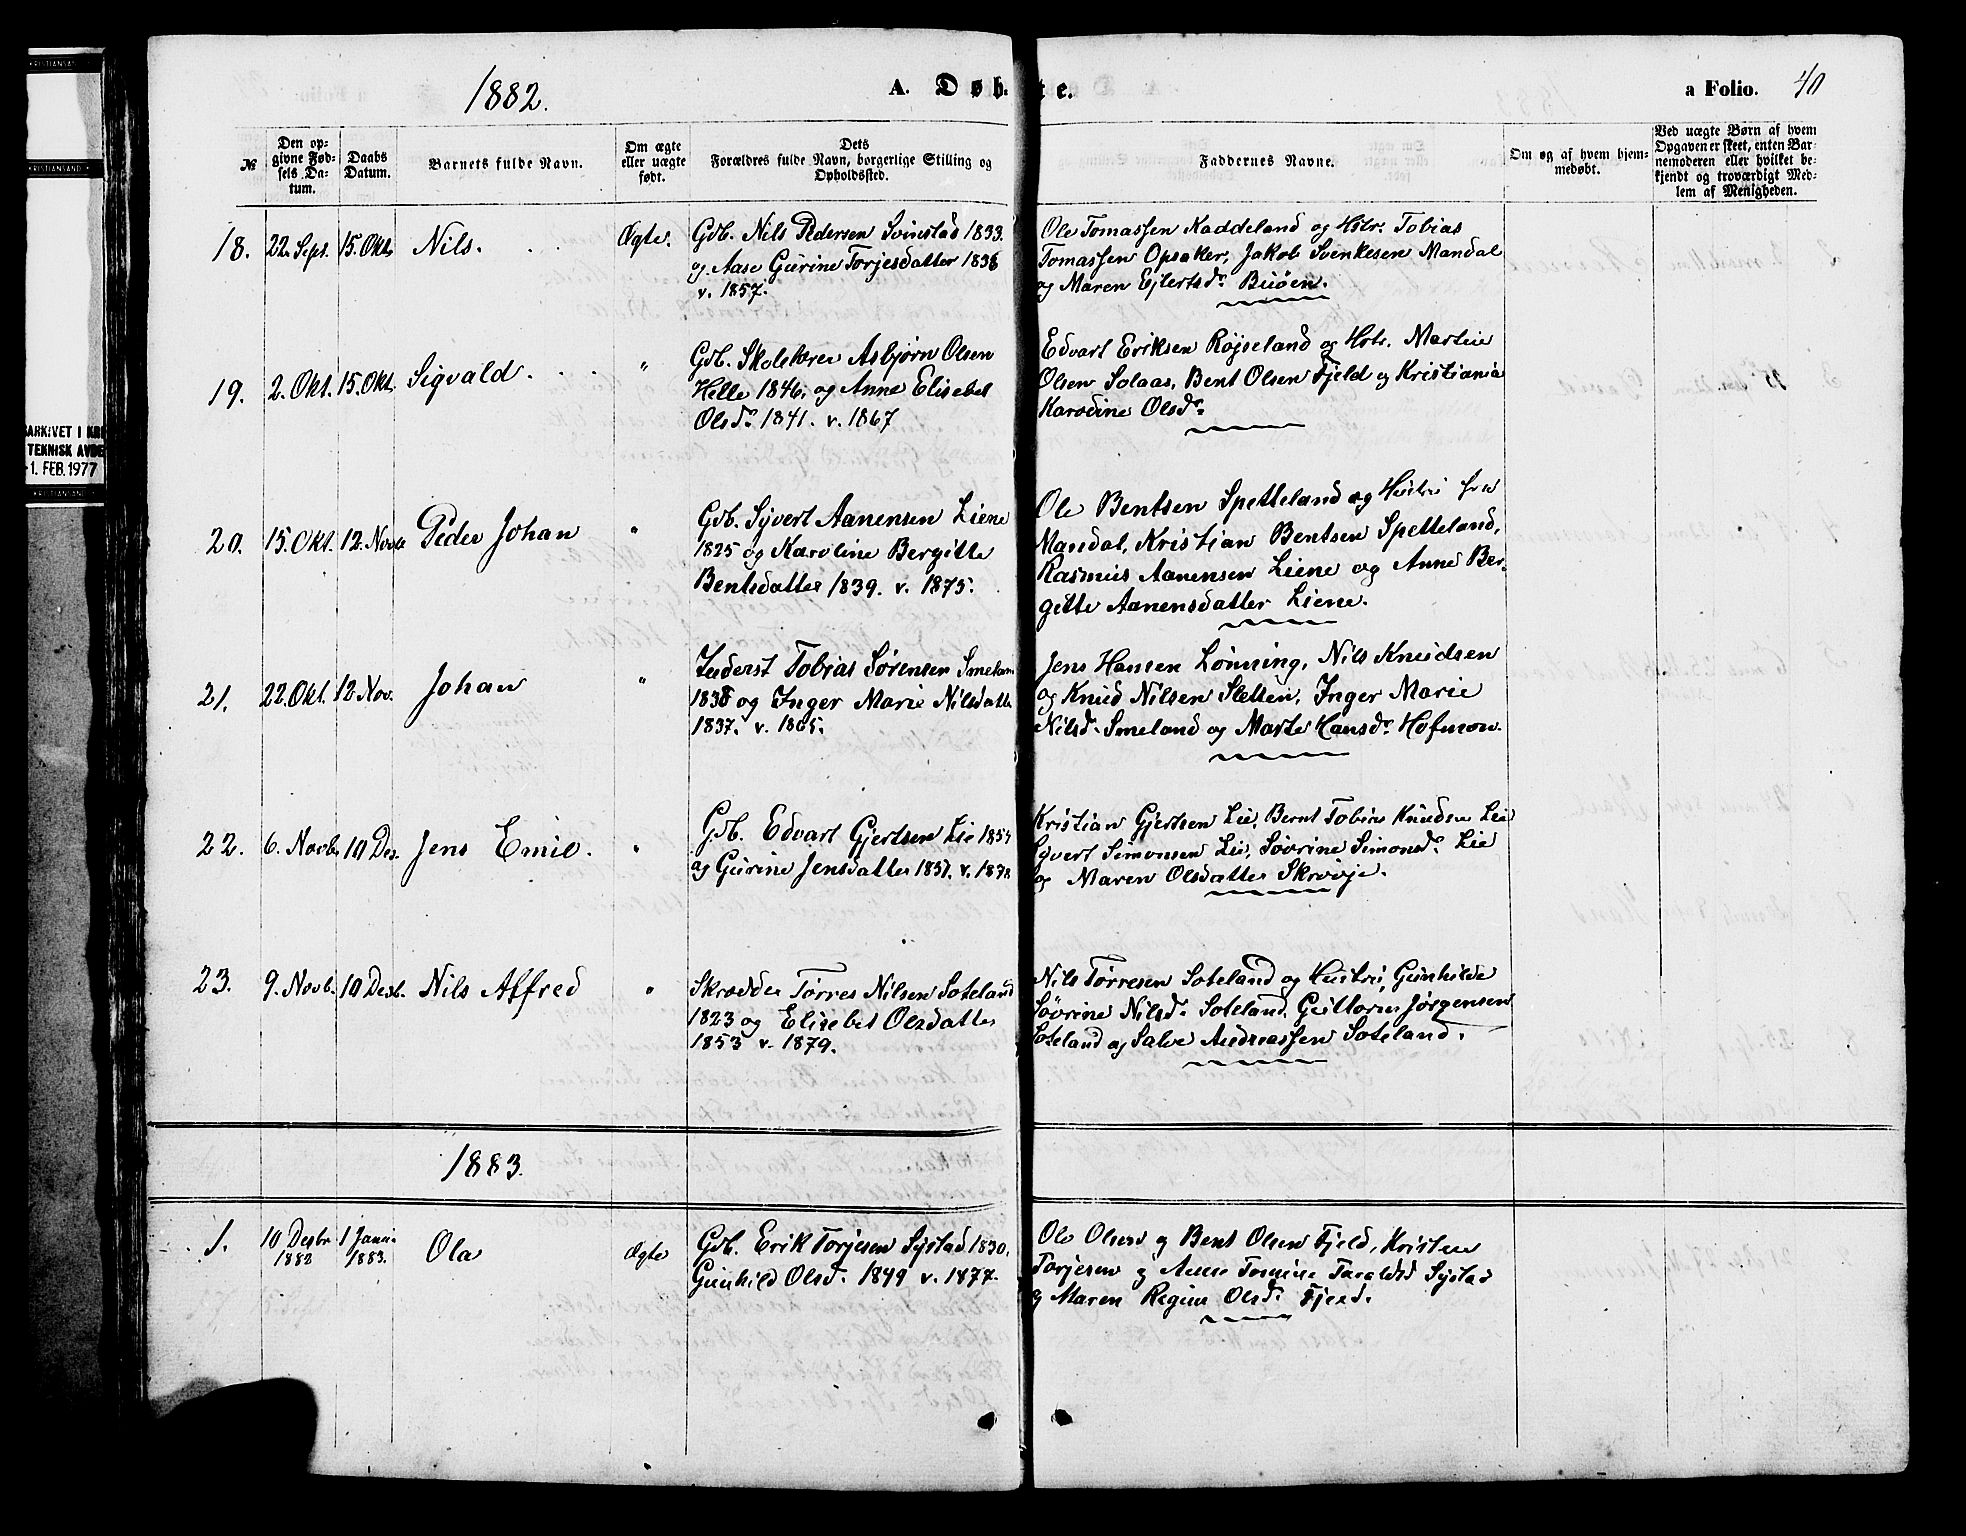 1882.
A. Døbte.
a Folio. 40
№
Den opgivne Fødsels Datum.
Daabs Datum.
Barnets fulde Navn.
Om ægte eller uægte født.
Dets Forældres fulde Navn, borgerlige Stilling og Opholdssted.
Faddernes Navne.
Om og af hvem hjemmedøbt.
Ved uægte Børn af hvem Opgaven er skeet, enten Barnemoderen eller hvilket bekjendt og troværdigt Medlem af Menigheden.
18. 22. Sept. 15. Okt. Nils. Ægte.
Gdb. Nils Pedersen Svinstad 1833.
og Aase Gurine Torjesdatter 1838
v. 1857.
Ole Tomassen Kaddeland og Hstr. Tobias
Tomassen Opsaker, Jakob Svenkesen Mandal
og Maren Ejlertsdr. Buøen.
19. 2. Okt. 15. Okt. Sigvald . . . "
Gdb. Skolelærer Asbjørn Olsen
Helle 1846. og Anne Elisebet
Olsdr. 1841. v. 1867
Edvart Eriksen Røjseland og Hstr. Martin
Olsen Solaas, Bent Olsen Fjeld og Kristiania
Karodine Olsdr.
20. 15. Okt. 12. Novb. Peder Johan "
Gdb. Syvert Aanensen Liene
1825 og Karoline Bergitte
Bentsdatter 1839. v. 1875.
Ole Bentsen Spetteland og Hustru fra
Mandal, Kristian Bentsen Spetteland,
Rasmus Aanensen Liene og Anne Ber-
gitte Aanensdatter Liene.
21. 22. Okt. 12. Nov. Johan "
Inderst Tobias Sørensen Smeland
1838 og Inger Marie Nilsdatter
1837. v. 1865.
Jens Hansen Lønning, Nils Knudsen
og Knud Nilsen Sletten, Inger Marie
Nilsd. Smeland og Marte Hansdr. Hofmon.
22. 6. Novb. 10 Des. Jens Emil. "
Gdb. Edvart Gjertsen Lie 1854
og Gurine Jensdatter 1857. v. 1878
Kristian Gjertsen Lie, Bernt Tobias Knudsen Lie
Syvert Simonsen Lie, Søvrine Simonsdr. Lie
og Maren Olsdatter Skrøje.
23. 9. Novb. 10 Desb. Nils Alfred "
Skrædder Tørres Nilsen Soteland
1823 og Elisebet Olsdatter
1853 v. 1879.
Nils Tørresen Soteland og Hustru, Gunhilde
Søvrine Nilsdr. Soteland, Guttorm Jørgensen
Soteland og Salve Andreassen Soteland.
1883.
1. 10 Desbr 1882 1 Janr. 1883. Ola ægte
Gdb. Erik Torjesen Systad 1830.
Gunhild Olsd. 1849 v. 1877.
Ole Olsen og Bent Olsen Fjeld, Kristen
Torjesen og Anne Tomine Taraldsd Systad
og Maren Regine Olsd. Fjeld.
KRISTIANSAND
KRISTIANSAND
ARKIVET I KRI
TEKNISK AVDE
1. FEB. 1977
KRISTIANSAND